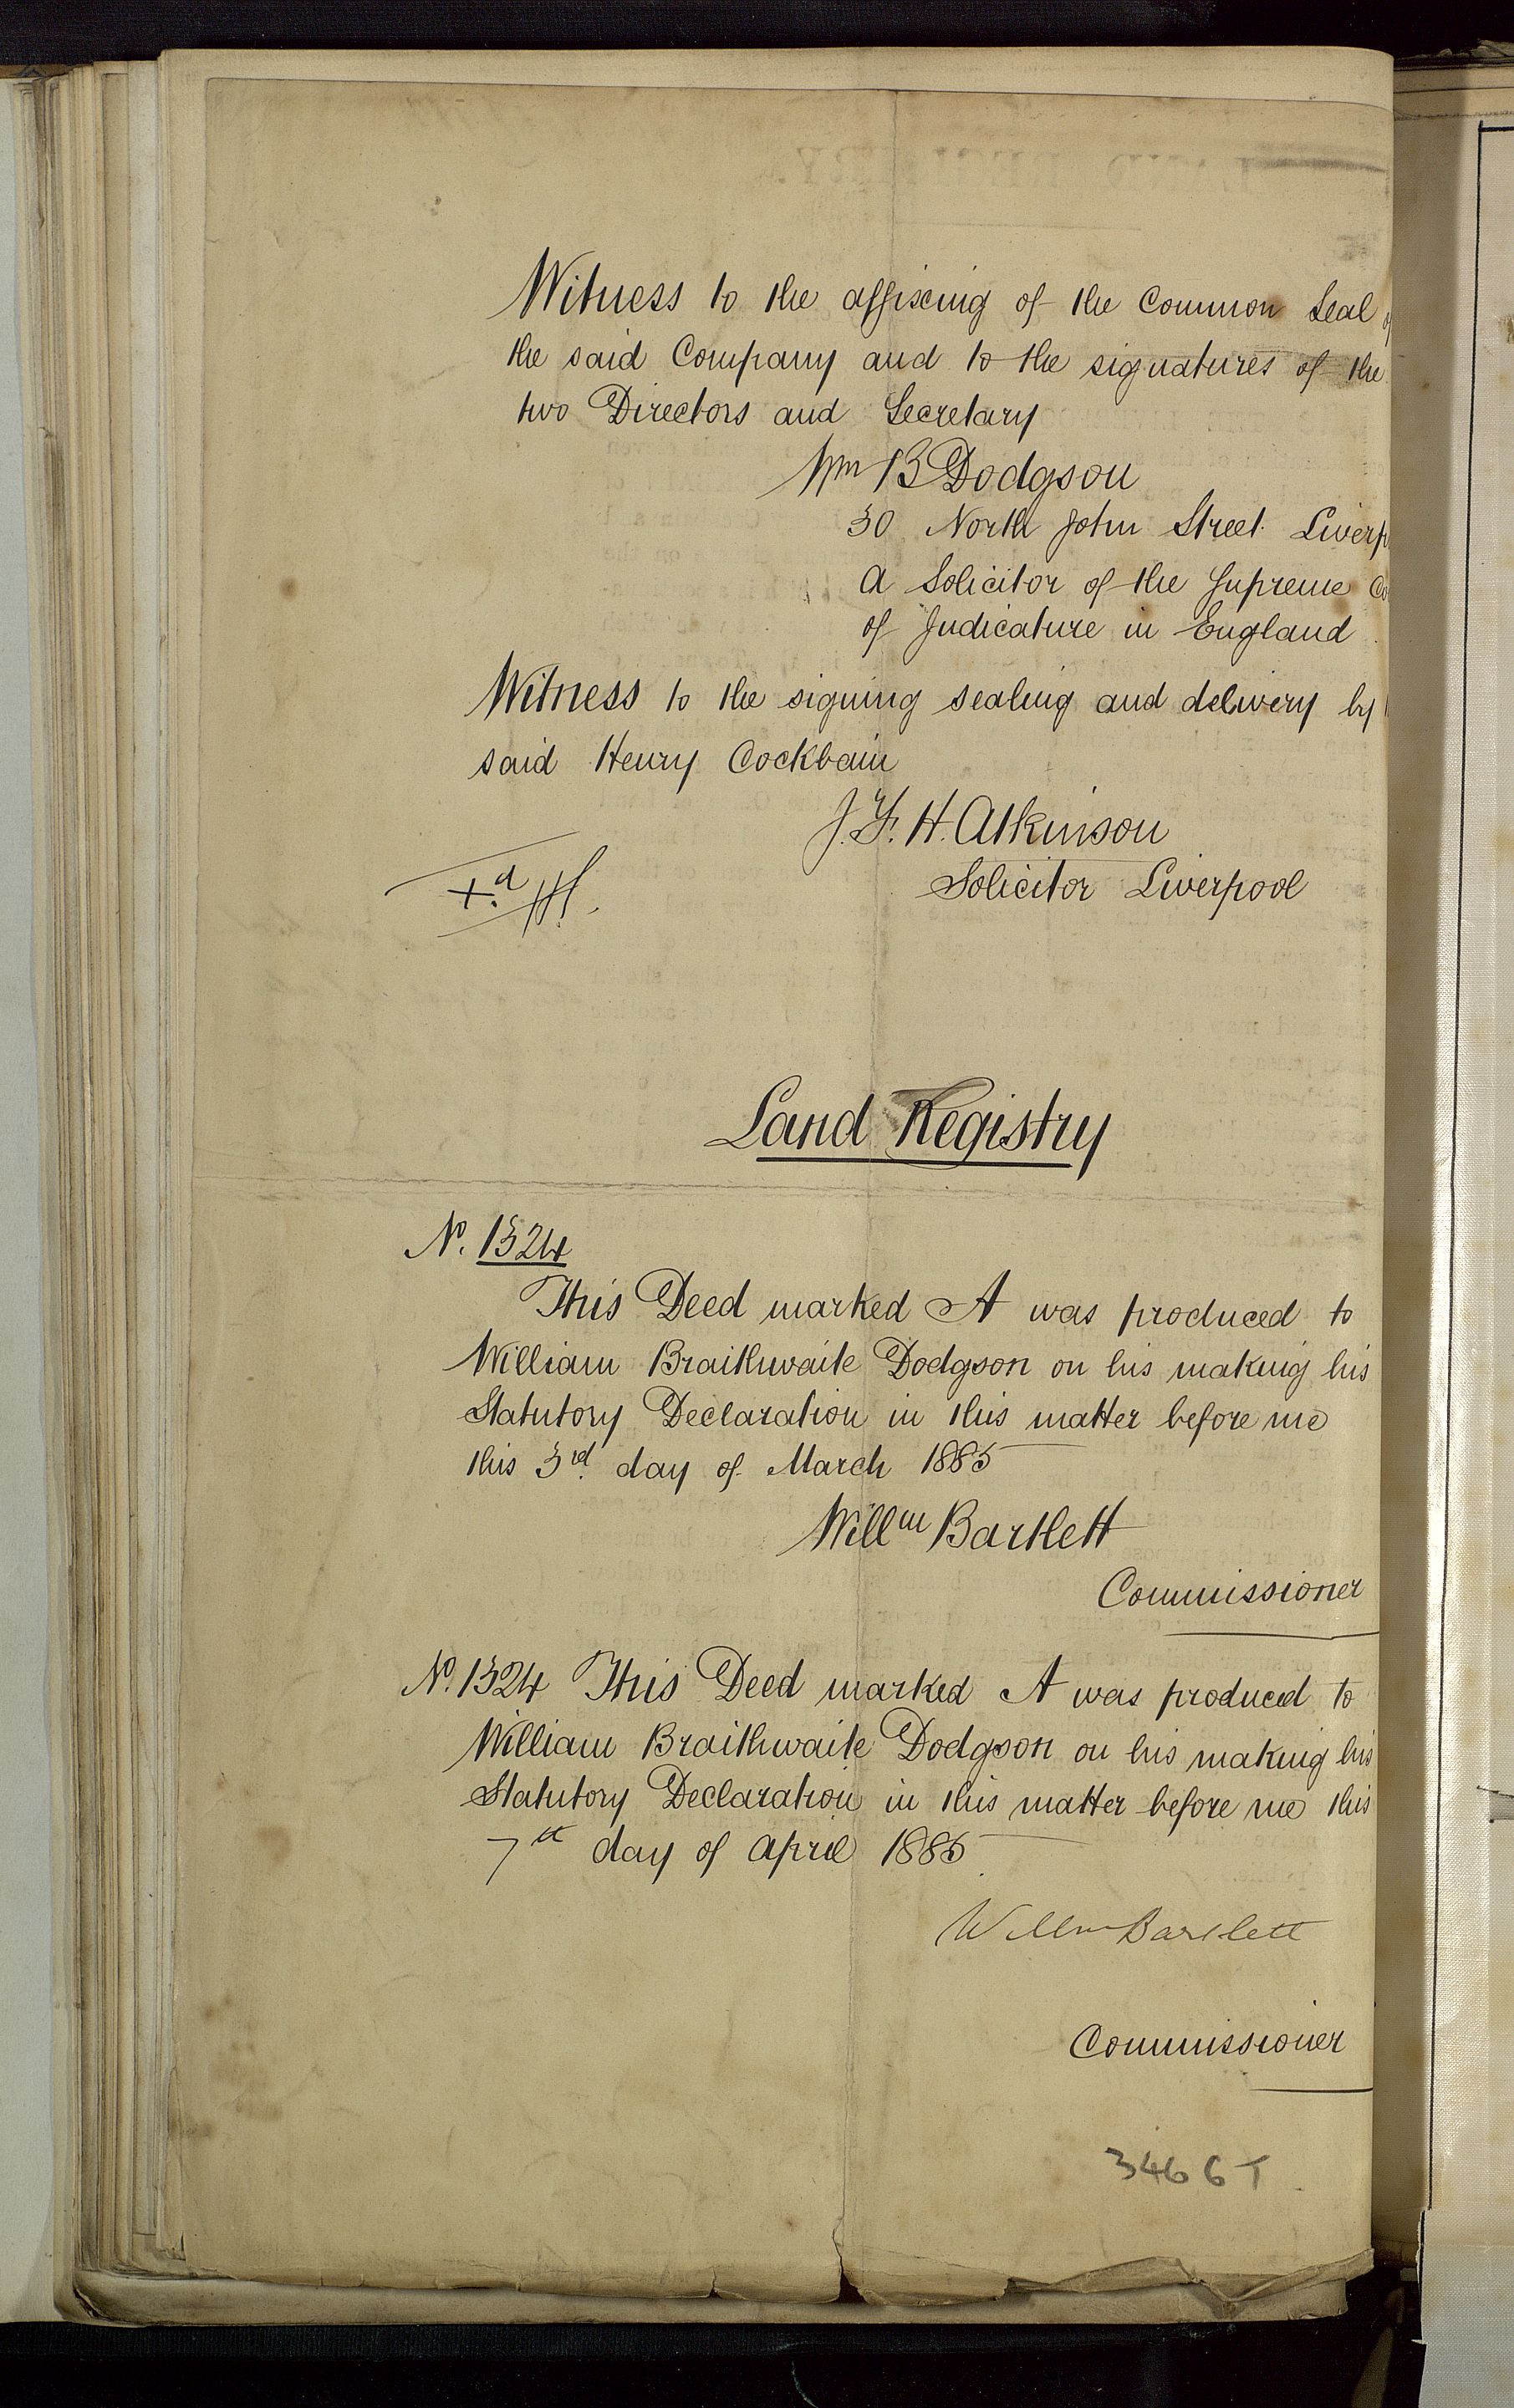 Witness to the affixing of the Common Seal
the said Company and to the signatures of the
two Directors and Secretary
Wm B Dodgson
30 North John Street Liverp
A Solicitor of the Supreme Co
of Judicature in England
Witness to the signing sealing and delivery by
said Henry Cockbain
J. F. H. Atkinson
Solicitor Liverpool
Land Registry
No. 1324
This Deed marked A was produced to
William Braithwaite Dodgson on his making his
Statutory Declaration in this matter before me
this 3rd. day of March 1885
Willm Bartlett
Commissioner
No. 1324 This Deed marked A was produced to
William Braithwaite Dodgson on his making his
Statutory Declaration in this matter before me this
7th day of April 1885
Willm Bartlett
Commissioner
3466T